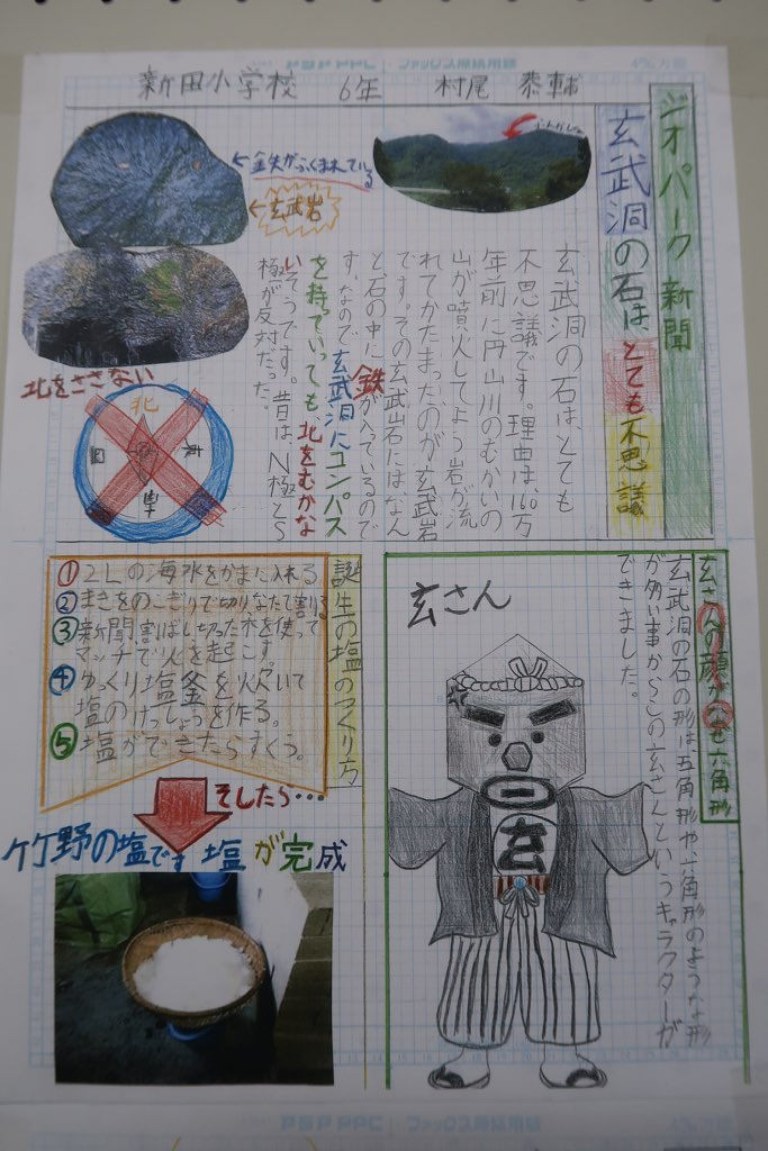 新田小学校　6年　村尾　泰輔
ジオパーク新聞
玄武洞の石はとても不思議
←鉄がふくまれている
←玄武岩
玄武洞の石は、とても
不思議です。理由は、160万
年前に円山川のむかいの
山が噴火してよう岩が流
れてかたまったのが玄武岩
です。その玄武岩にはなん
と、石の中に鉄が入っているので
す。なので玄武洞にコンパス
を持っていっても北をむかな
いそうです。昔は、N極とS
極が反対だった。
北をささない
北
南
玄さんの顔がなぜ六角形
玄武洞の石の形は、五角形や六角形のような形
が多い事からこの玄さんというキャラクターが
できました。
玄さん
玄
誕生の塩のつくり方
①2Lの海水をかまに入れる
②まきをのこぎりで切りなたで割る
③新聞、割ばし、切った木を使って
マッチで火を起こす。
④ゆっくり塩釜を炊いて
塩のけっしょうを作る。
⑤塩ができたらすくう。
そしたら…
竹野の塩です　塩が完成